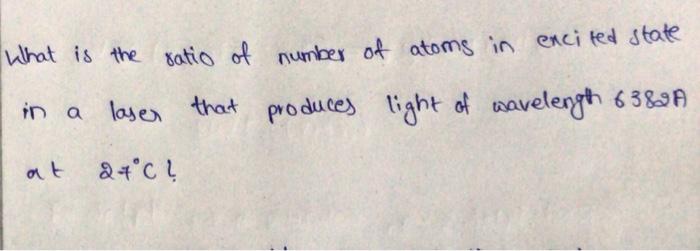 What is the ratio of number of atoms in excited state
in a laser that produces light of wavelength 6382A
at 27°C?